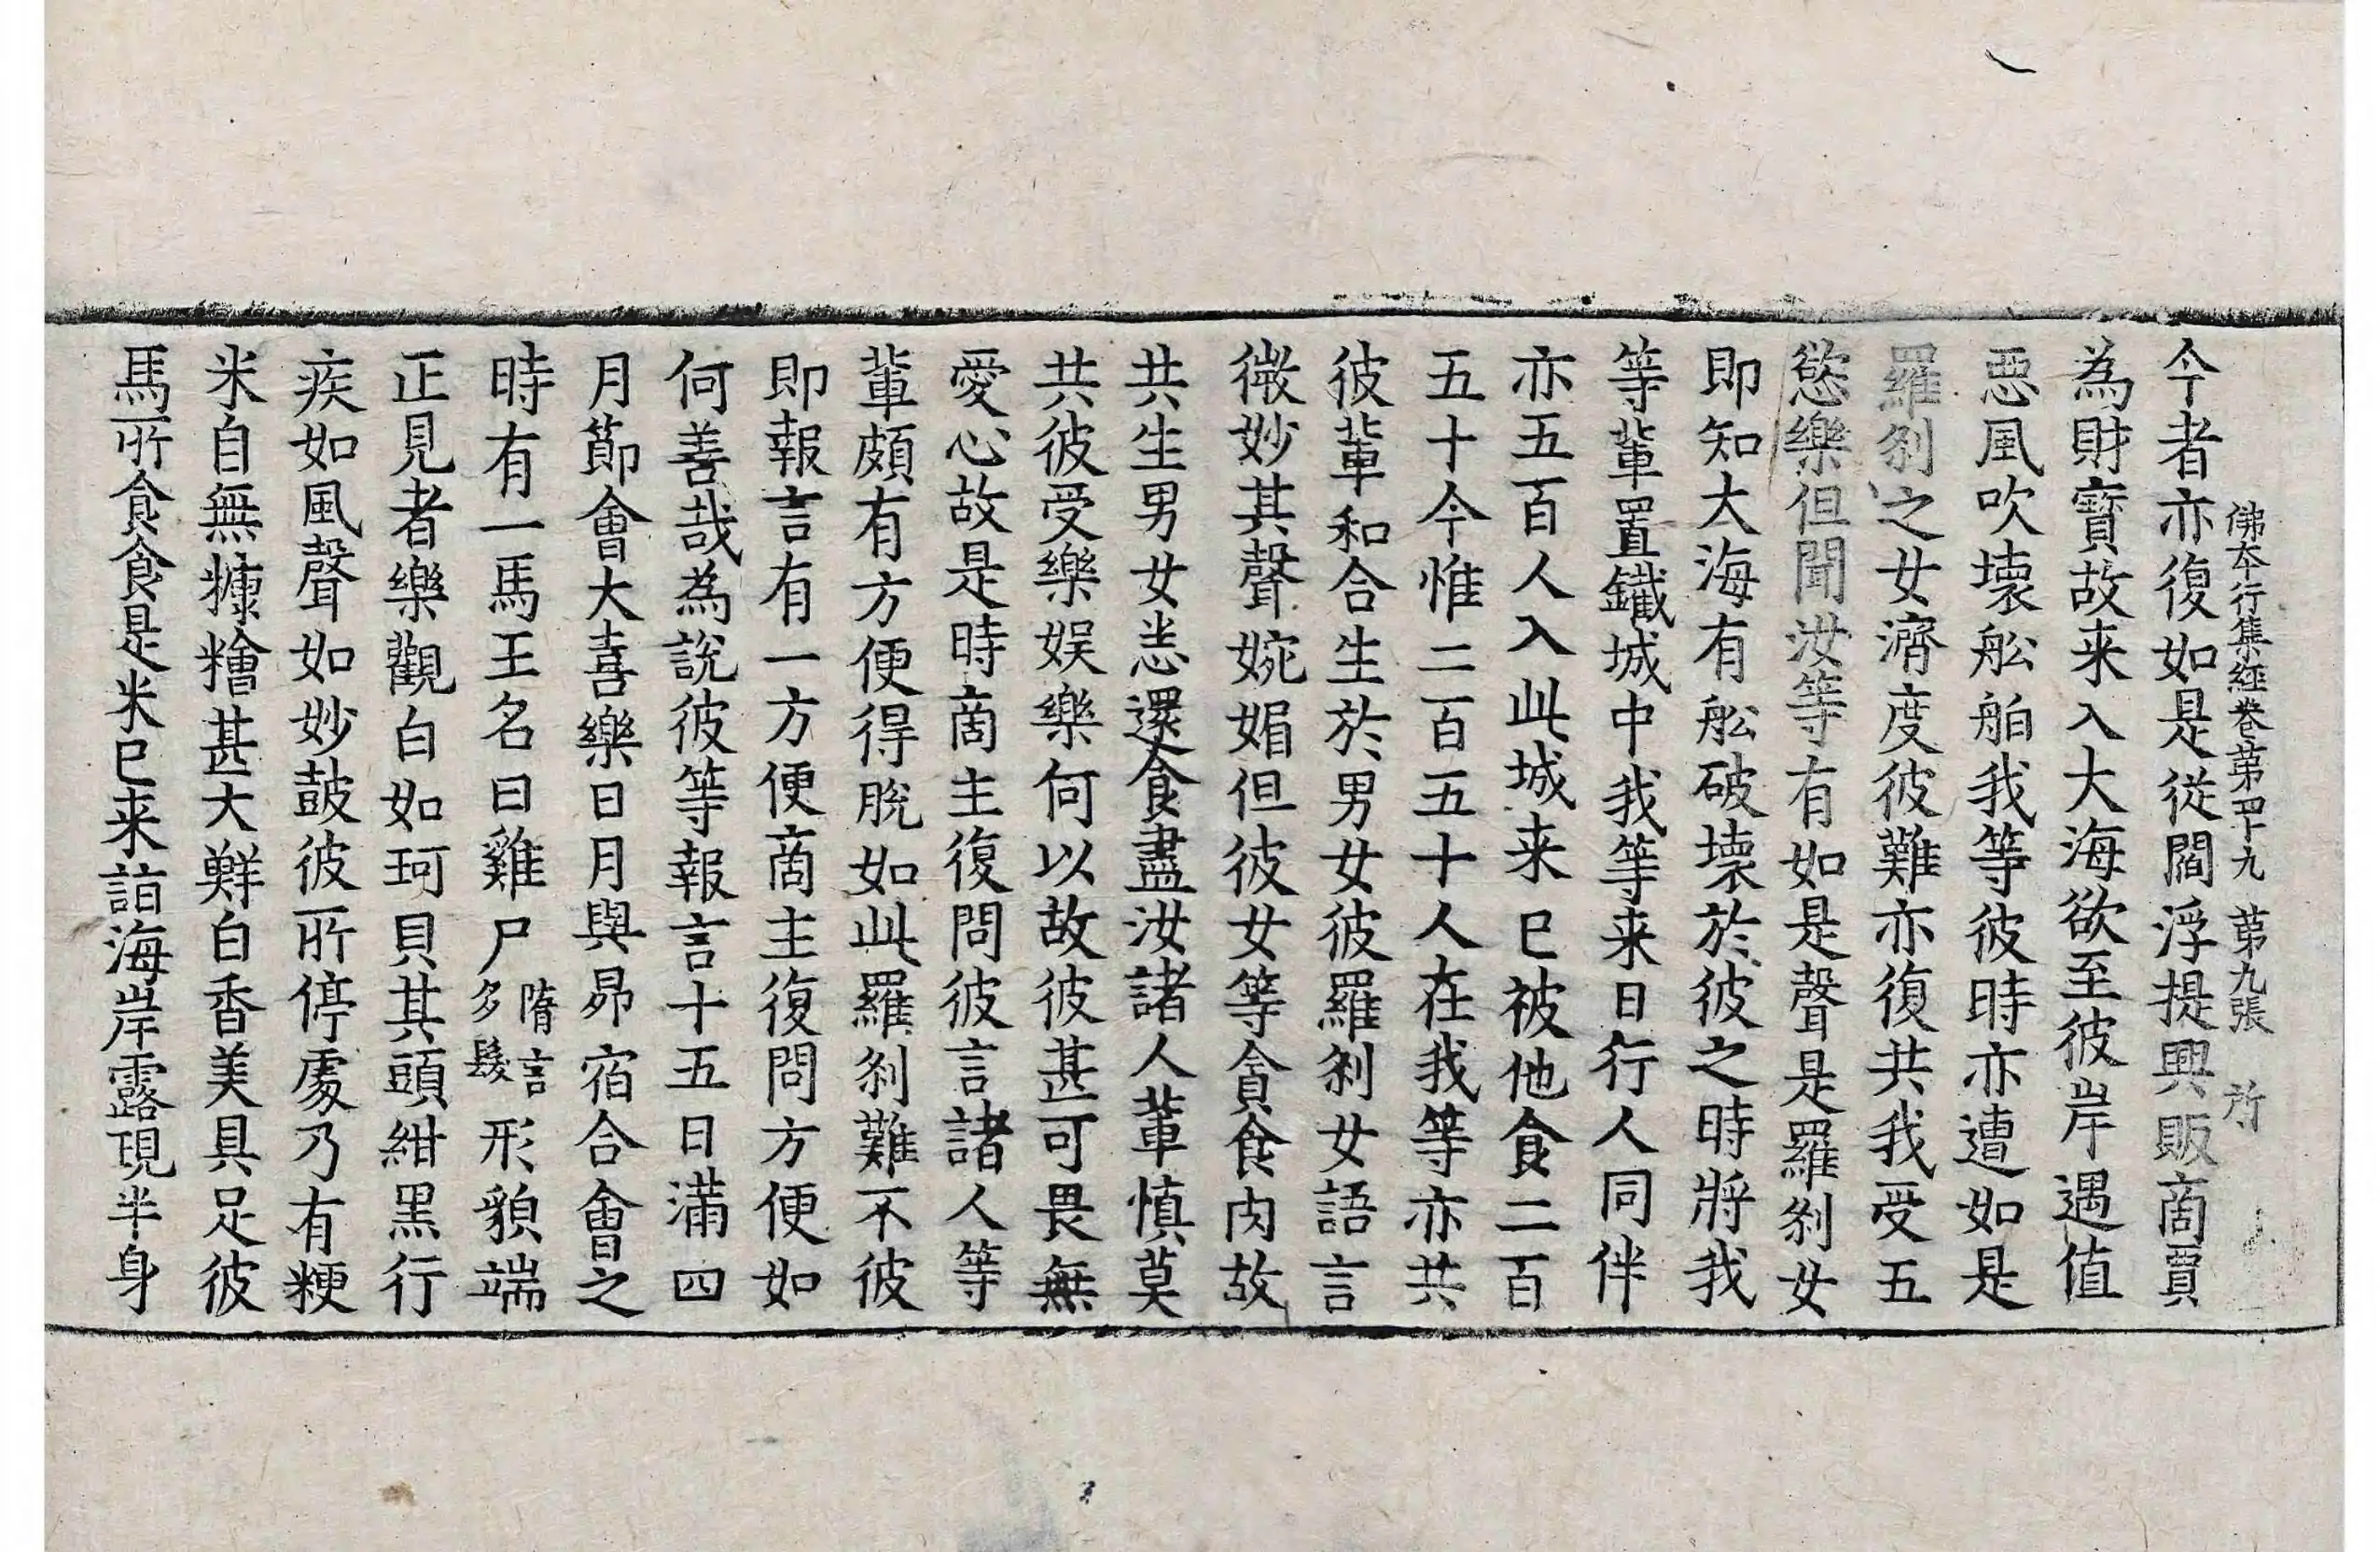 佛本行集經卷第四十九　第九張　所
今者亦復如是從閻浮提興販商賈
為財寳故来入大海欲至彼岸遇值
惡風吹壞舩舶我等彼時亦遭如是
羅刹之女濟度彼難亦復共我受五
慾樂但聞汝等有如是聲是羅刹女
即知大海有舩破壞於彼之時將我
等軰置鐵城中我等来日行人同伴
亦五百人入此城来已被他食二百
五十今惟二百五十人在我等亦共
彼軰和合生於男女彼羅刹女語言
微妙其聲婉媚但彼女等貪食肉故
共生男女恙還食盡汝諸人軰慎莫
共彼受樂娱樂何以故彼甚可畏無
愛心故是時商主復問彼言諸人等
軰頗有方便得脫如此羅刹難不彼
即報言有一方便商主復問方便如
何善哉為說彼等報言十五日滿四
月節會大喜樂日月與昴宿合會之
時有一馬王名曰雞尸隋言多髮形貌端
正見者樂觀白如珂貝其頭紺黑行
疾如風聲如妙鼓彼所停處乃有粳
米自無糠糩甚大鮮白香美具足彼
馬所食食是米已来詣海岸露現半身